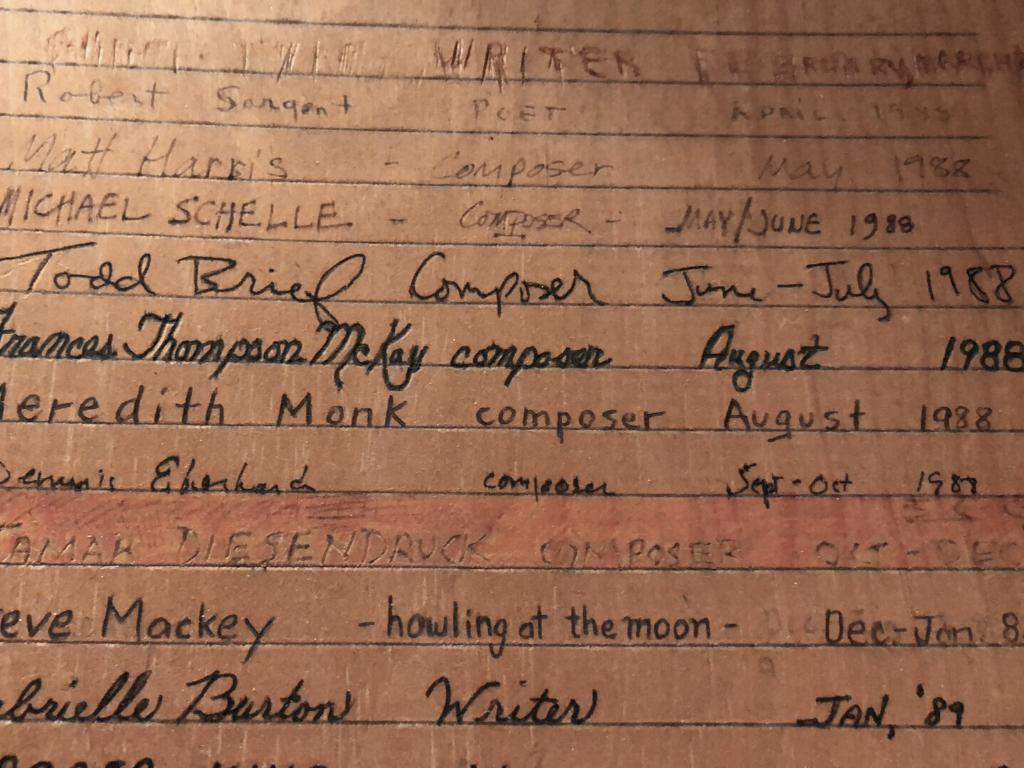 WRITER FEBRUARY, MARCH
Robert Sargent POET APRIL 1988
Matt Harris - Composer May 1988
MICHAEL SCHELLE - COMPOSER - MAY/JUNE 1988
Todd Brief Composer June - July 1988
Frances Thompson McKay composer August 1988
Meredith Monk composer August 1988
Dennis Eberhard composer Sept - Oct 1988
TAMAR DIESENDRUCK COMPOSER OCT - DEC
eve Mackey - howling at the moon - Dec.-Jan. 8
brielle Burton Writer JAN, '89